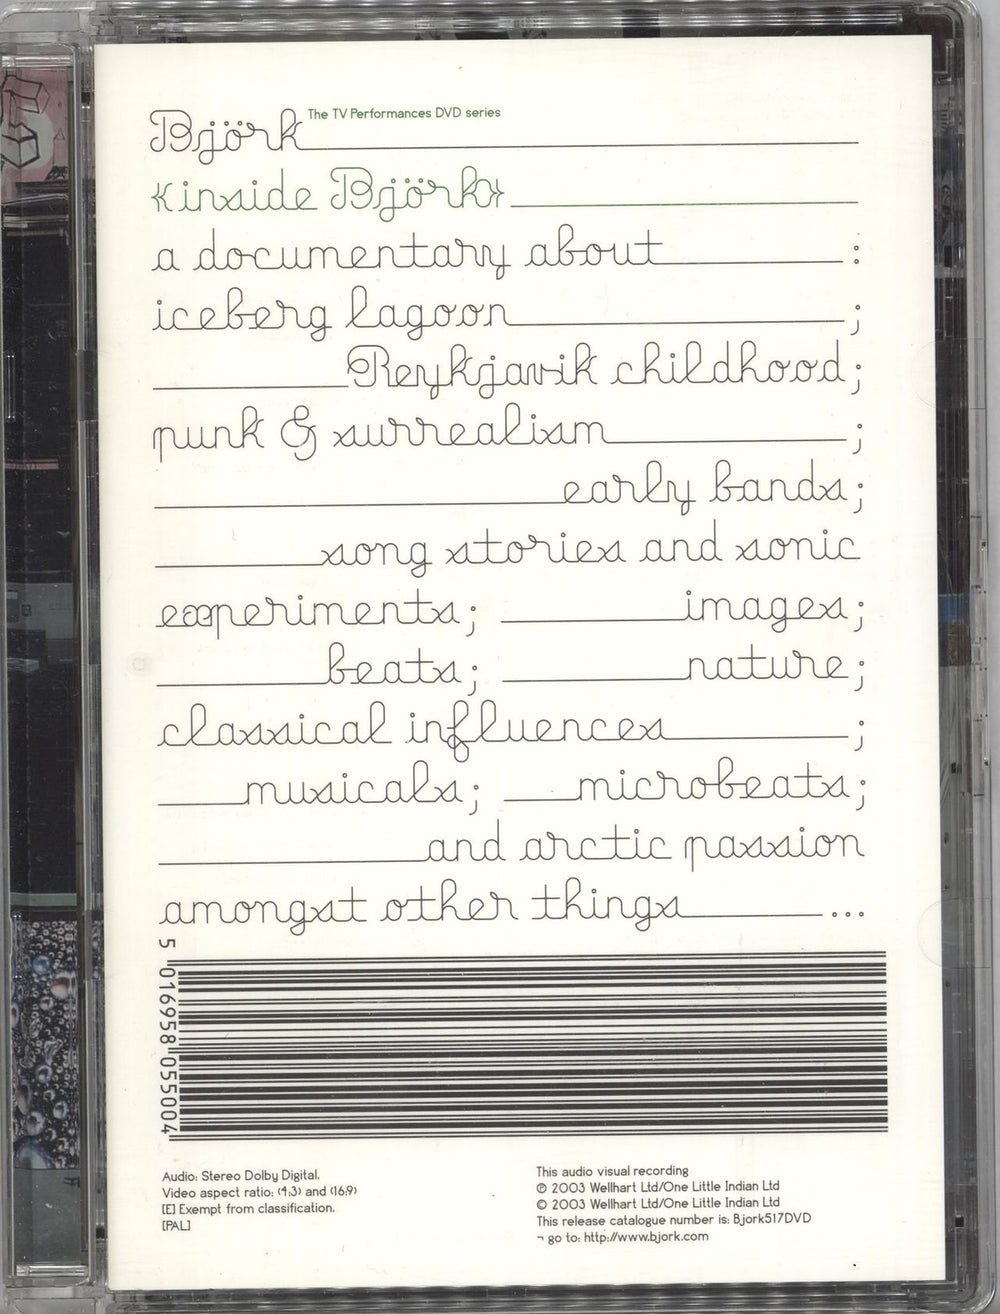 The TV Performances DVD series
Björk
{inside Björk}
a documentary about :
iceberg lagoon ;
Reykjavik childhood;
punk & surrealism ;
early bands;
song stories and sonic
experiments; images;
beats; nature;
classical influences ;
musicals; microbeats;
and arctic passion
amongst other things ...
5 016958 055004
Audio: Stereo Dolby Digital.
Video aspect ratio: (4:3) and (16:9)
[E] Exempt from classification.
[PAL]
This audio visual recording
℗ 2003 Wellhart Ltd/One Little Indian Ltd
© 2003 Wellhart Ltd/One Little Indian Ltd
This release catalogue number is: Bjork517DVD
¬ go to: http://www.bjork.com